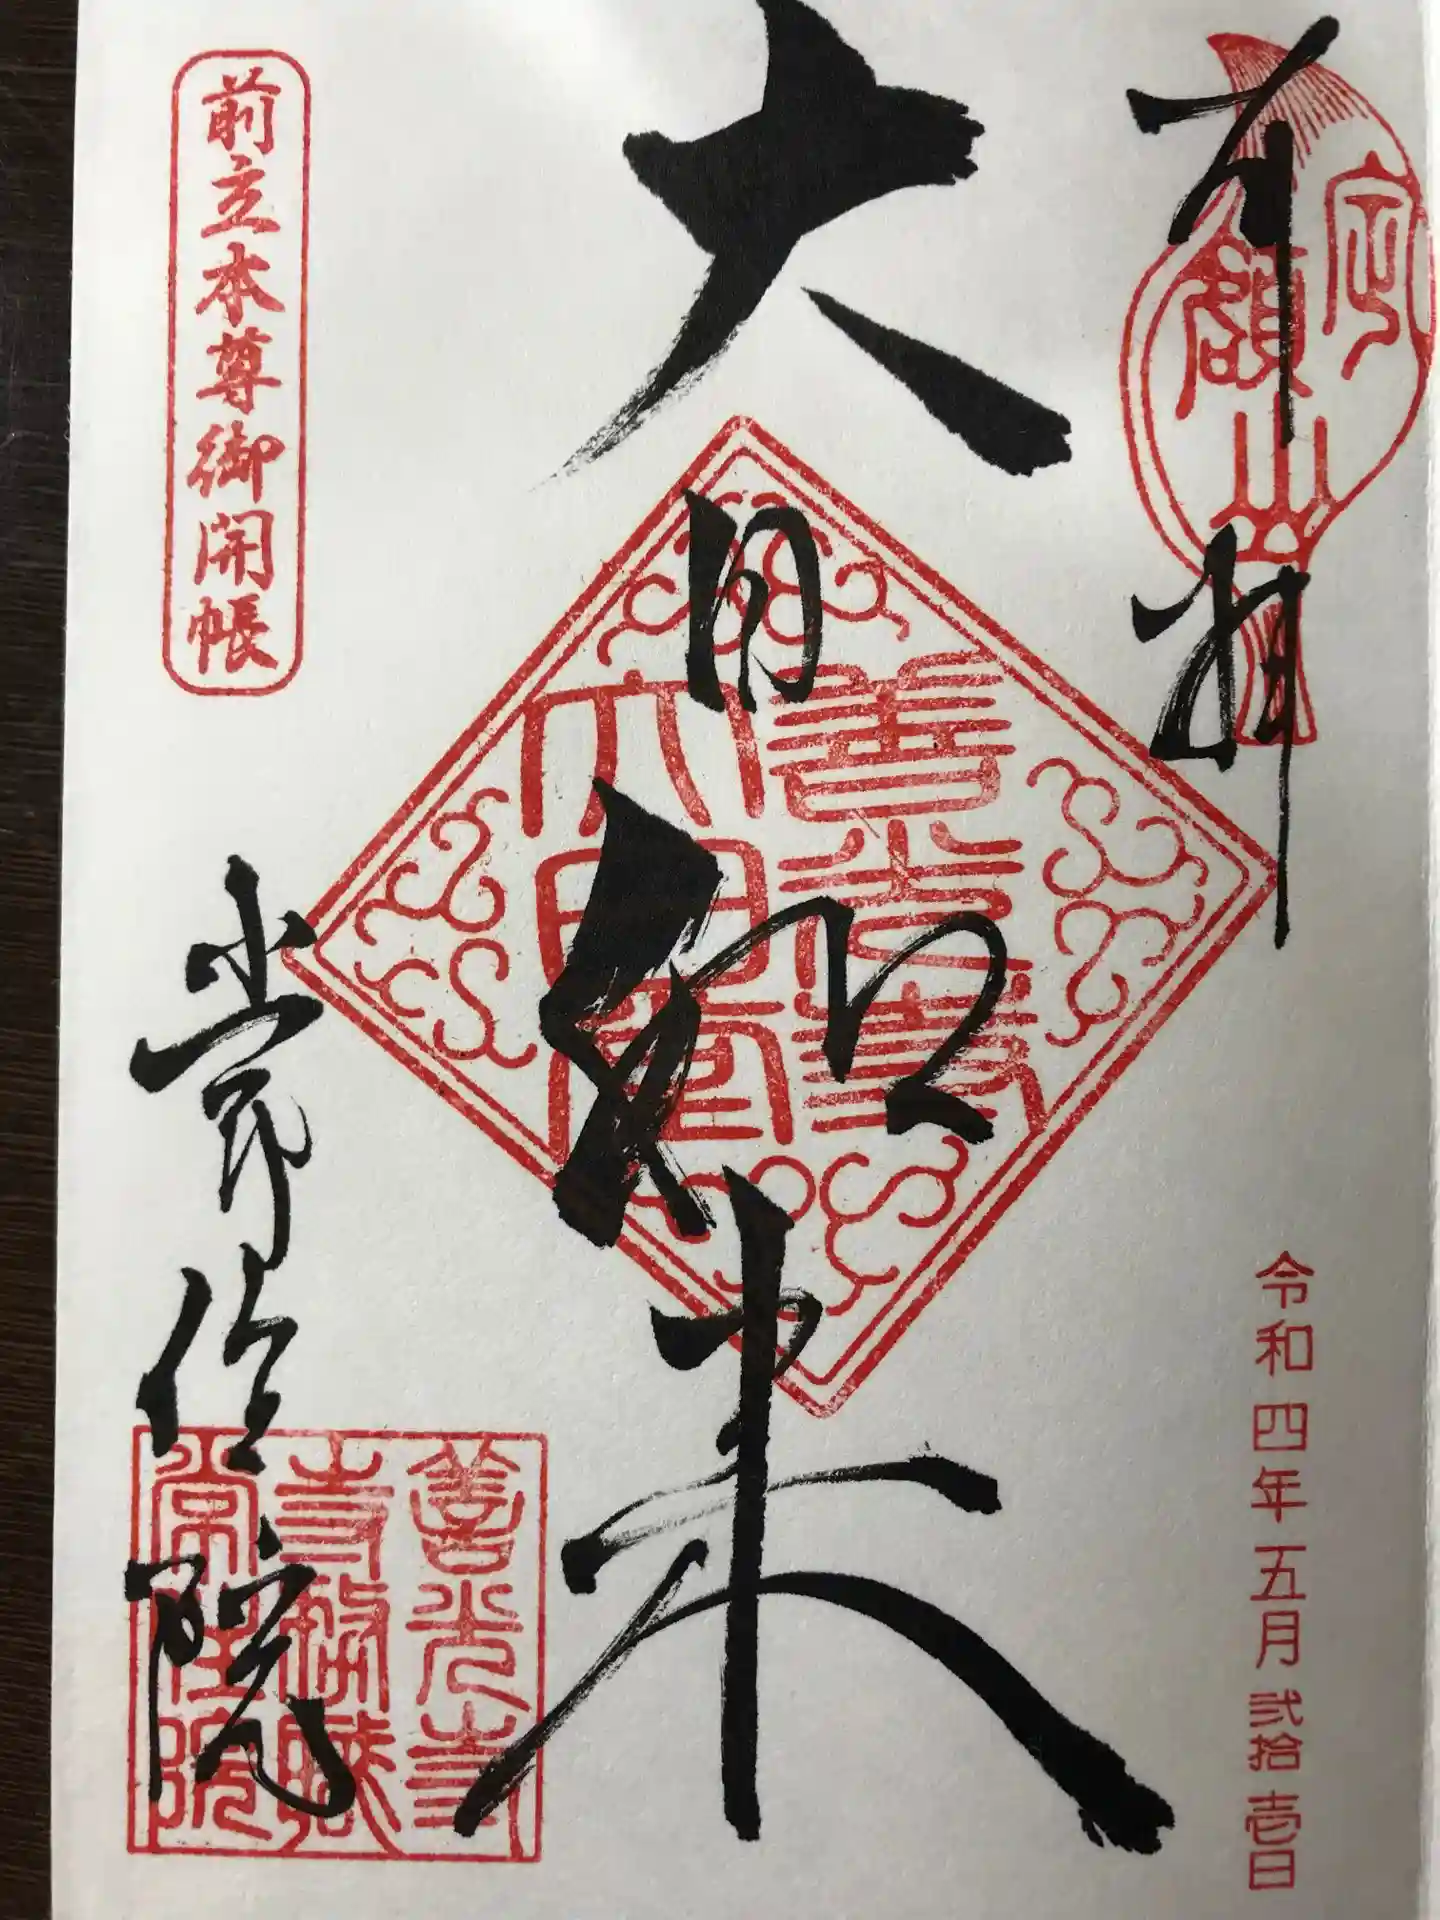 奉拝
定額山
令和四年五月弐拾壱日
大日如来
善光寺
大日庵
前立本尊御開帳
常住院
善光寺
寺務職
常住院